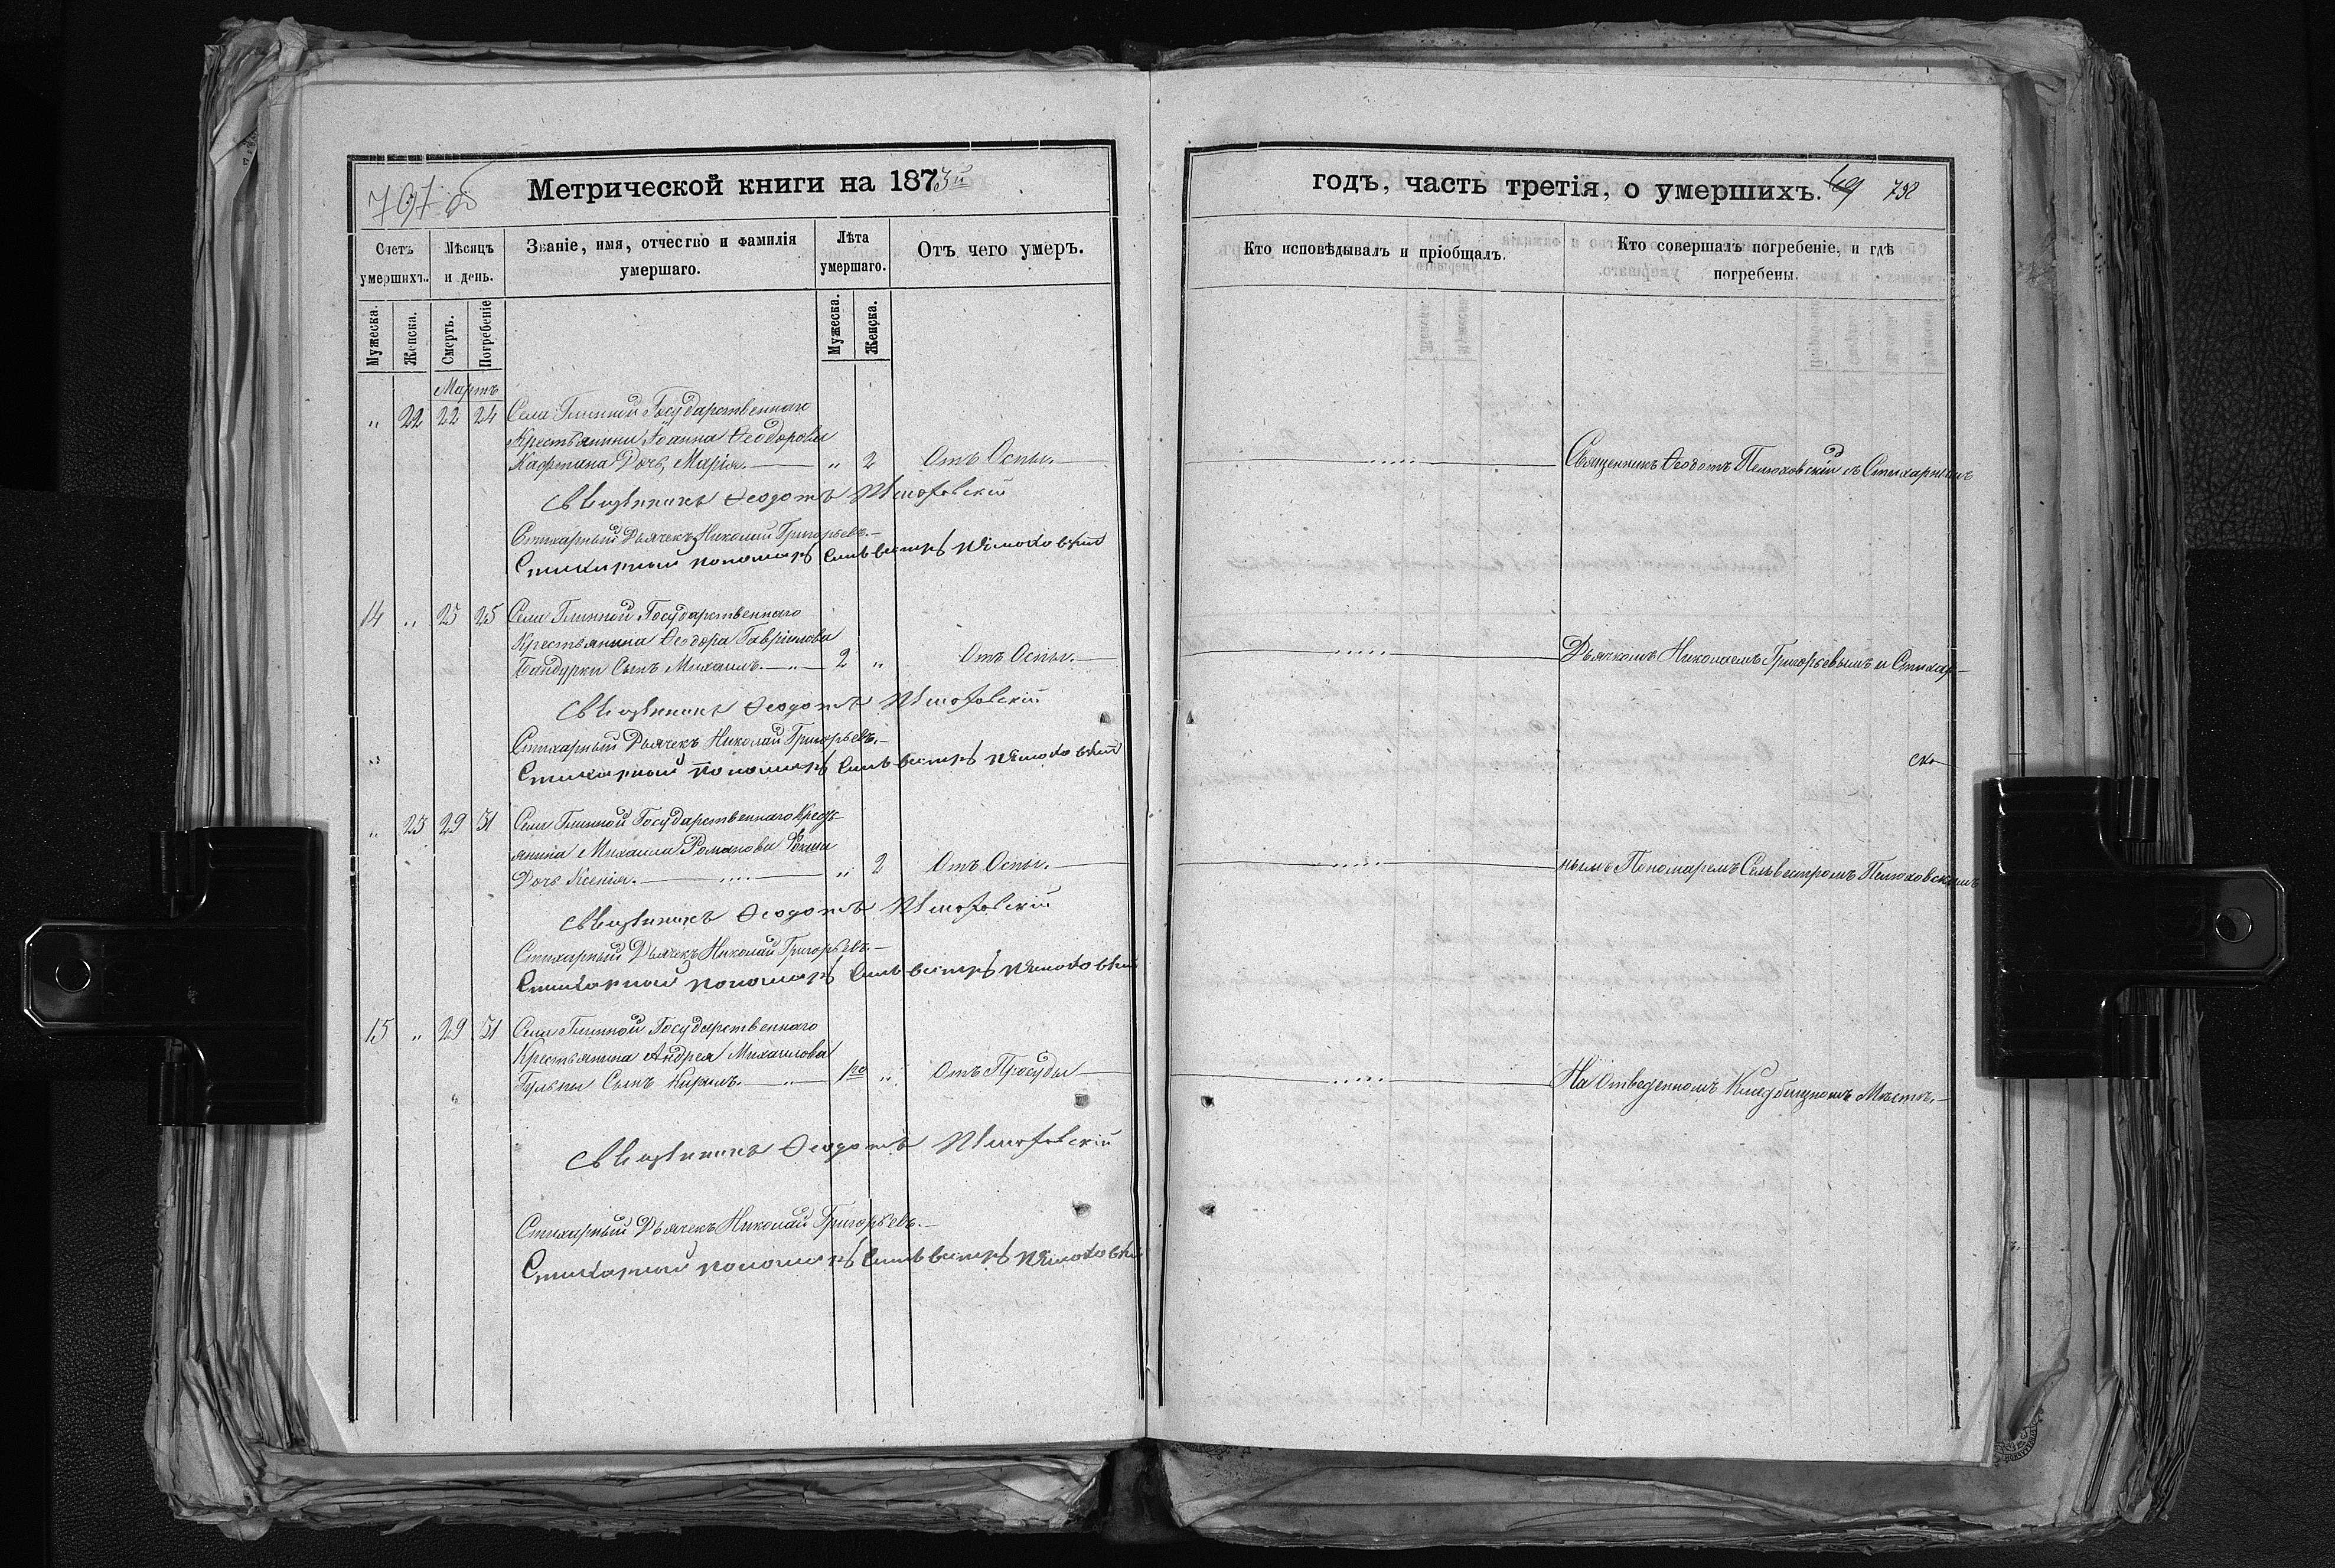 Метрической книги на 1873й
годъ, часть третія, о умершихъ. 69 732
Счетъ умершихъ.
Мѣсяцъ и день.
Званіе, имя, отчество и фамилія умершаго.
Лѣта умершаго.
Отъ чего умеръ.
Кто исповѣдывалъ и пріобщалъ.
Кто совершалъ погребеніе, и гдѣ погребены.
Мужеска.
Женска.
Смерть.
Погребеніе
Мужеска.
Женска.
Мартъ
" 22 22 24 Села Глинной Государственнаго
Крестьянина Іоанна Ѳеодорова
Кафтана Дочь, Марія. " 2 Отъ Оспы.
Священникъ Ѳеодотъ Пелюховскій съ Стихарнымъ
Священникъ Ѳеодотъ Пелюховскій
Стихарный Дьячекъ Николай Григорьевъ.
Стихарный пономарь Сильвестръ Пелюховскій
14 " 25 25 Села Глинной Государственнаго
Крестьянина Ѳеодора Гавріилова
Бандурки Сынъ Михаилъ. 2 " Отъ Оспы.
Дьячкомъ Николаемъ Григорьевымъ и Стихар-
Священникъ Ѳеодотъ Пелюховскій
Стихарный Дьячекъ Николай Григорьевъ.
Стихарный пономарь Сильвестръ Пелюховскій
" 23 29 31 Села Глинной Государственнаго Крест-
янина Михаила Романова
Дочь Ксенія. " 2 Отъ Оспы.
нымъ Пономаремъ Сельвестромъ Пелюховскимъ
Священникъ Ѳеодотъ Пелюховскій
Стихарный Дьячекъ Николай Григорьевъ.
Стихарный пономарь Сильвестръ Пелюховскій
15 " 29 31 Села Глинной Государственнаго
Крестьянина Андрея Михаилова
Гульпы Сынъ Кирилъ. 1го " Отъ Простуды
На Отведенномъ Кладбищномъ Мѣстѣ.
Священникъ Ѳеодотъ Пелюховскій
Стихарный Дьячекъ Николай Григорьевъ.
Стихарный пономарь Сильвестръ Пелюховскій